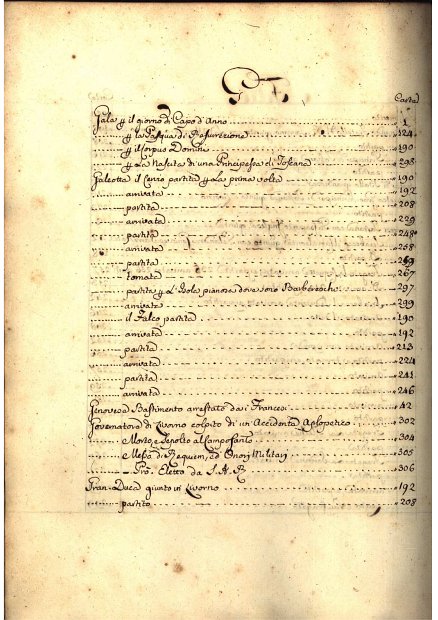 G
Carta
Gala p il giorno di Capo d'Anno 1
p la Pasqua di Resurezione 124
p il Corpus Domini 190
p La Nascita di una Principessa di Toscana 298
Galeotta il Cervio partita p La prima volta 190
arrivata 192
partita 208
arrivata 229
partita 248
arrivata 258
partita
tornata 267
partita p L'Isola pianosa dove sono Barbereschi 297
arrivata 299
il Falco partita 190
arrivata 192
partita 213
arrivata 224
partita 241
arrivata 246
Genovese Bastimento arrestato dai Francesi 42
Governatore di Livorno colpito di un Accidente Aplopetico 302
Morto, e Sepolto al Camposanto 304
Messa di Requiem, ed Onori Militari 305
Pro: Eletto da S.A.R 306
Gran-Duca giunto in Livorno 192
partito 208